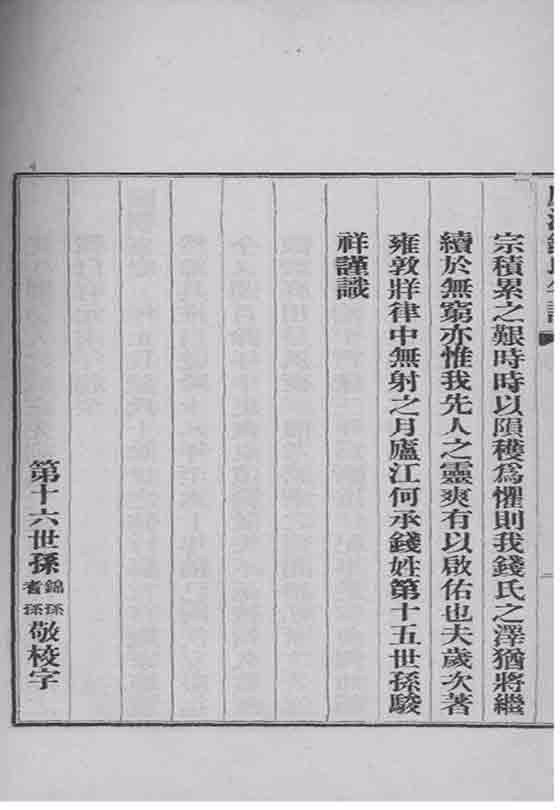 宗積累之艱時時以隕穫爲懼則我錢氏之澤猶將繼
續於無窮亦惟我先人之靈爽有以啟佑也夫歲次著
雍敦牂律中無射之月廬江何承錢姓第十五世孫駿
祥謹識
第十六世孫錦孫耆孫敬校字